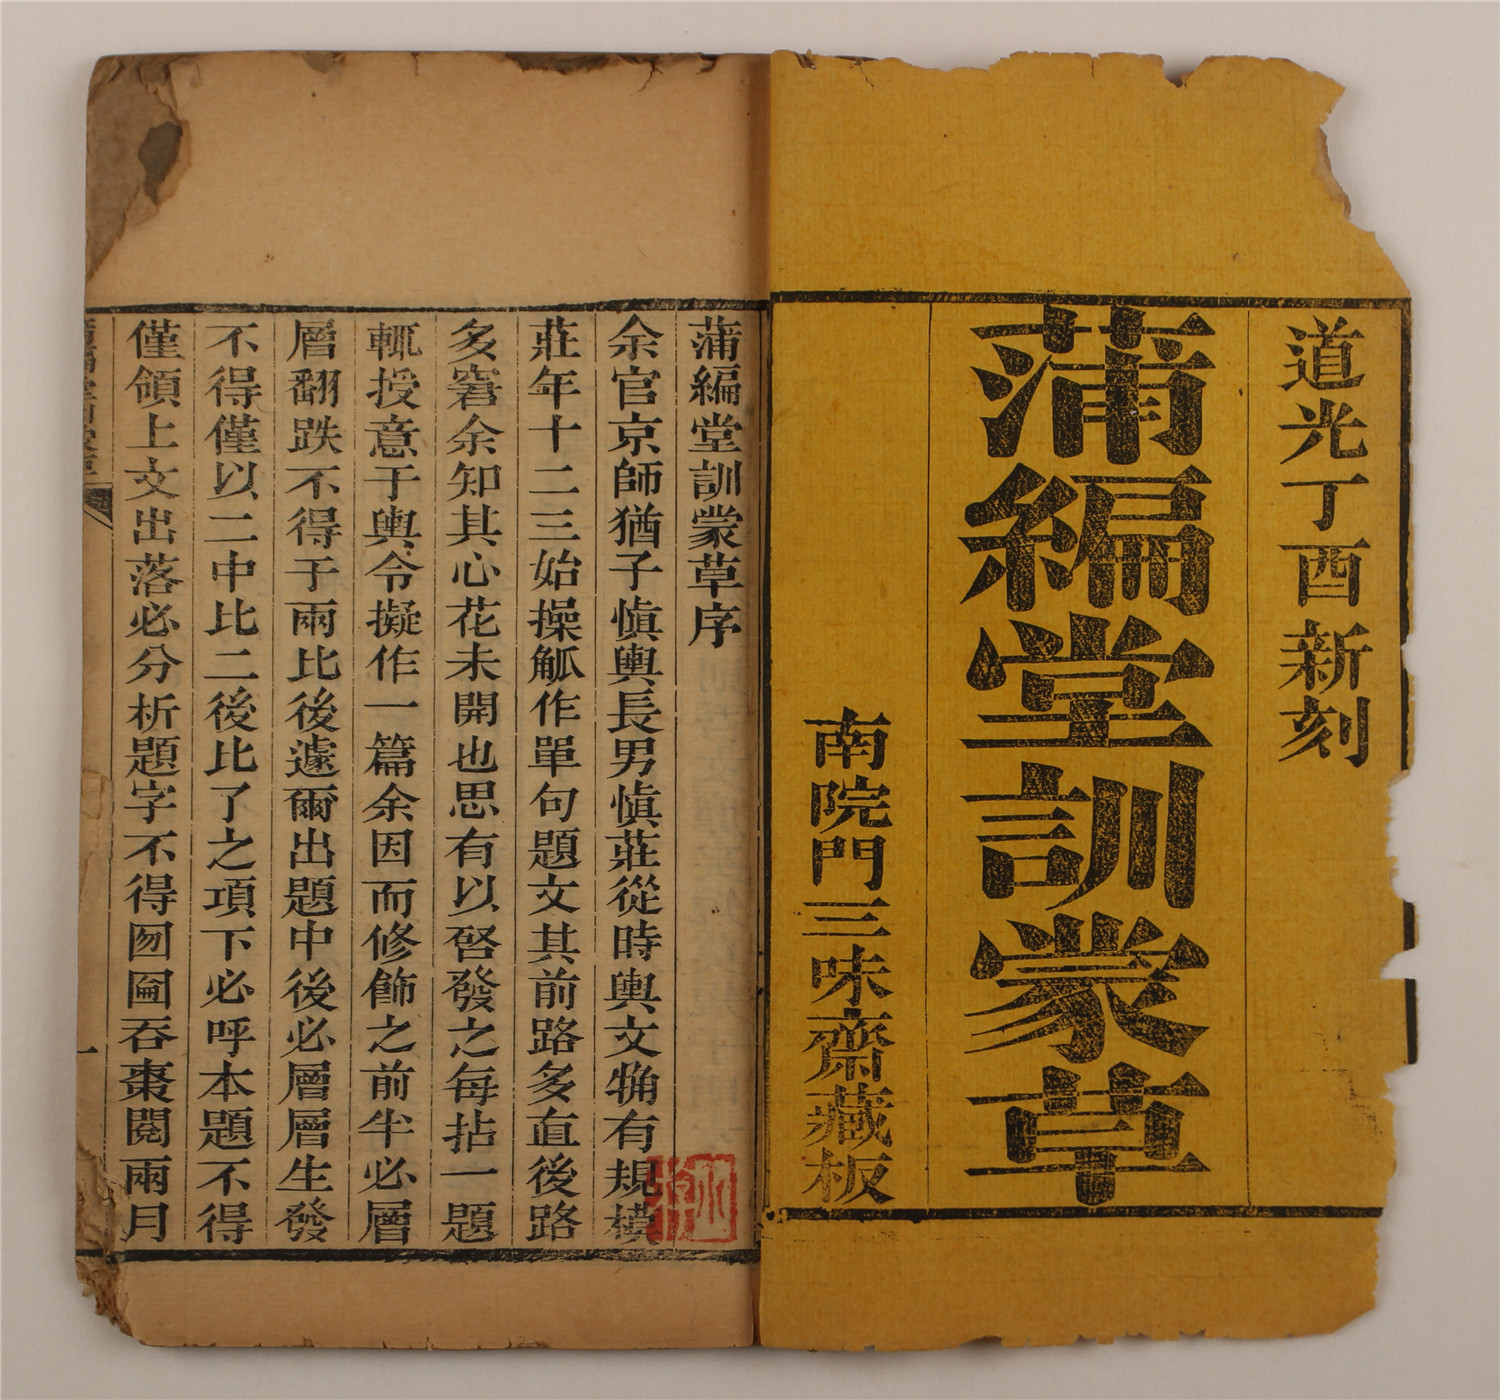 道光丁酉新刻
蒲編堂訓蒙草
南院門三味齋藏板
蒲編堂訓蒙草序
余官京師猶子慎輿長男慎莊從時輿文觕有規模
莊年十二三始操觚作單句題文其前路多直後路
多窘余知其心花未開也思有以啓發之每拈一題
輒授意于輿令擬作一篇余因而修飾之前半必層
層翻跌不得于兩比後遽爾出題中後必層層生發
不得僅以二中比二後比了之項下必呼本題不得
僅領上文出落必分析題字不得囫圇吞棗閱兩月
一